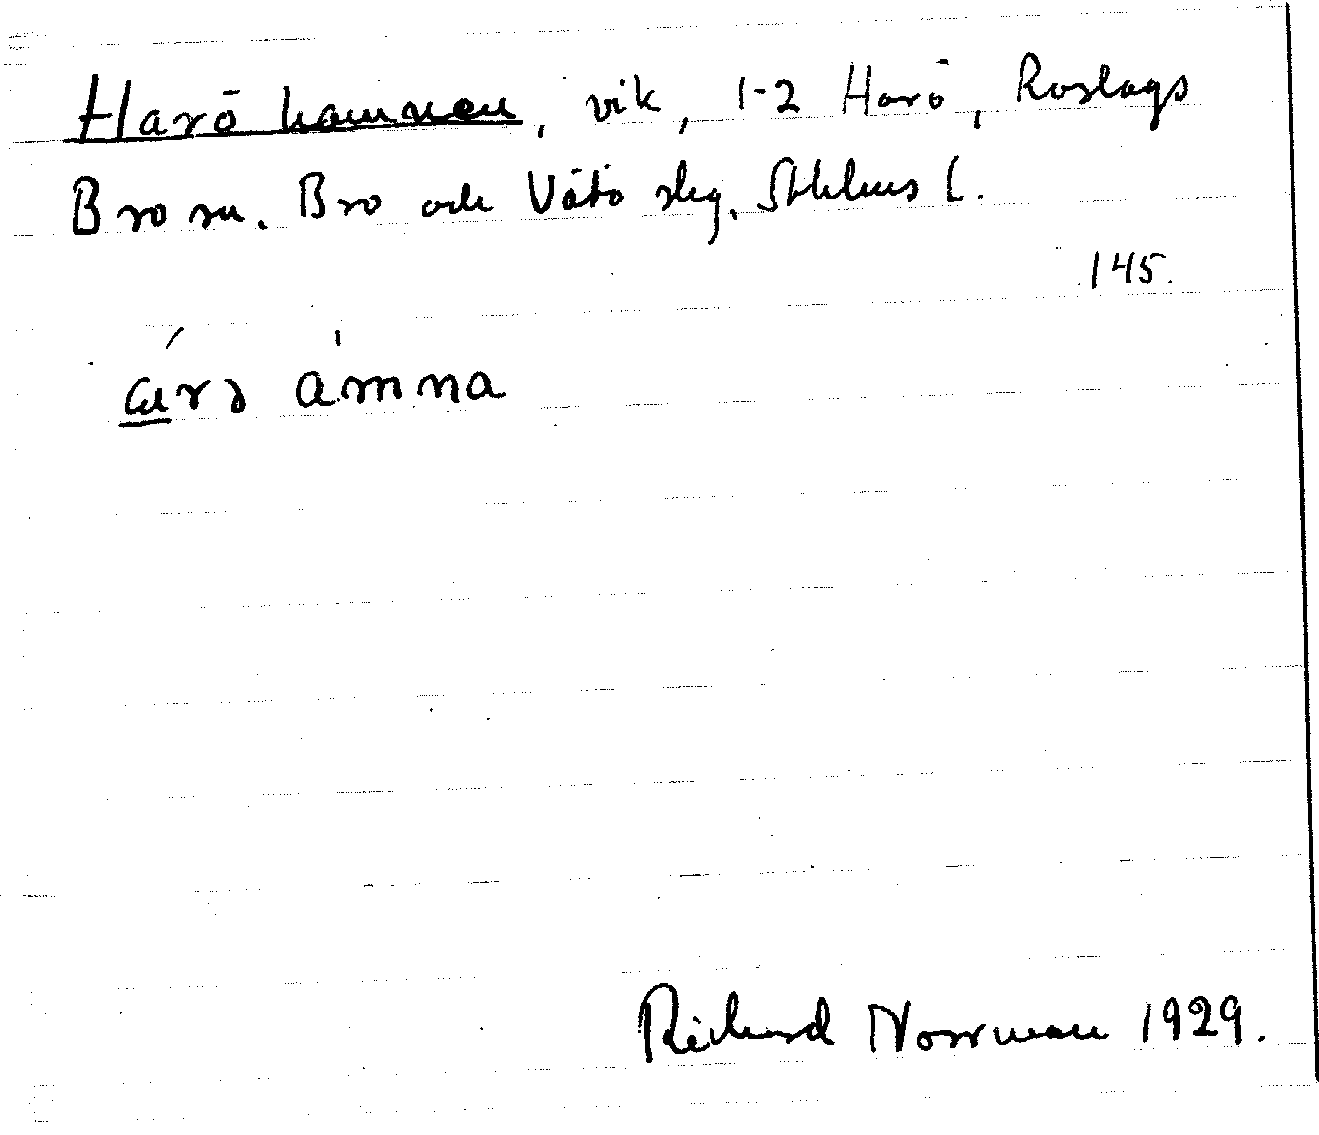 Harö hamnen, vik, 1-2 Harö, Roslags
Bro sn. Bro och Vätö slg. Sthlms l.
145.
Richard Norrman 1929.